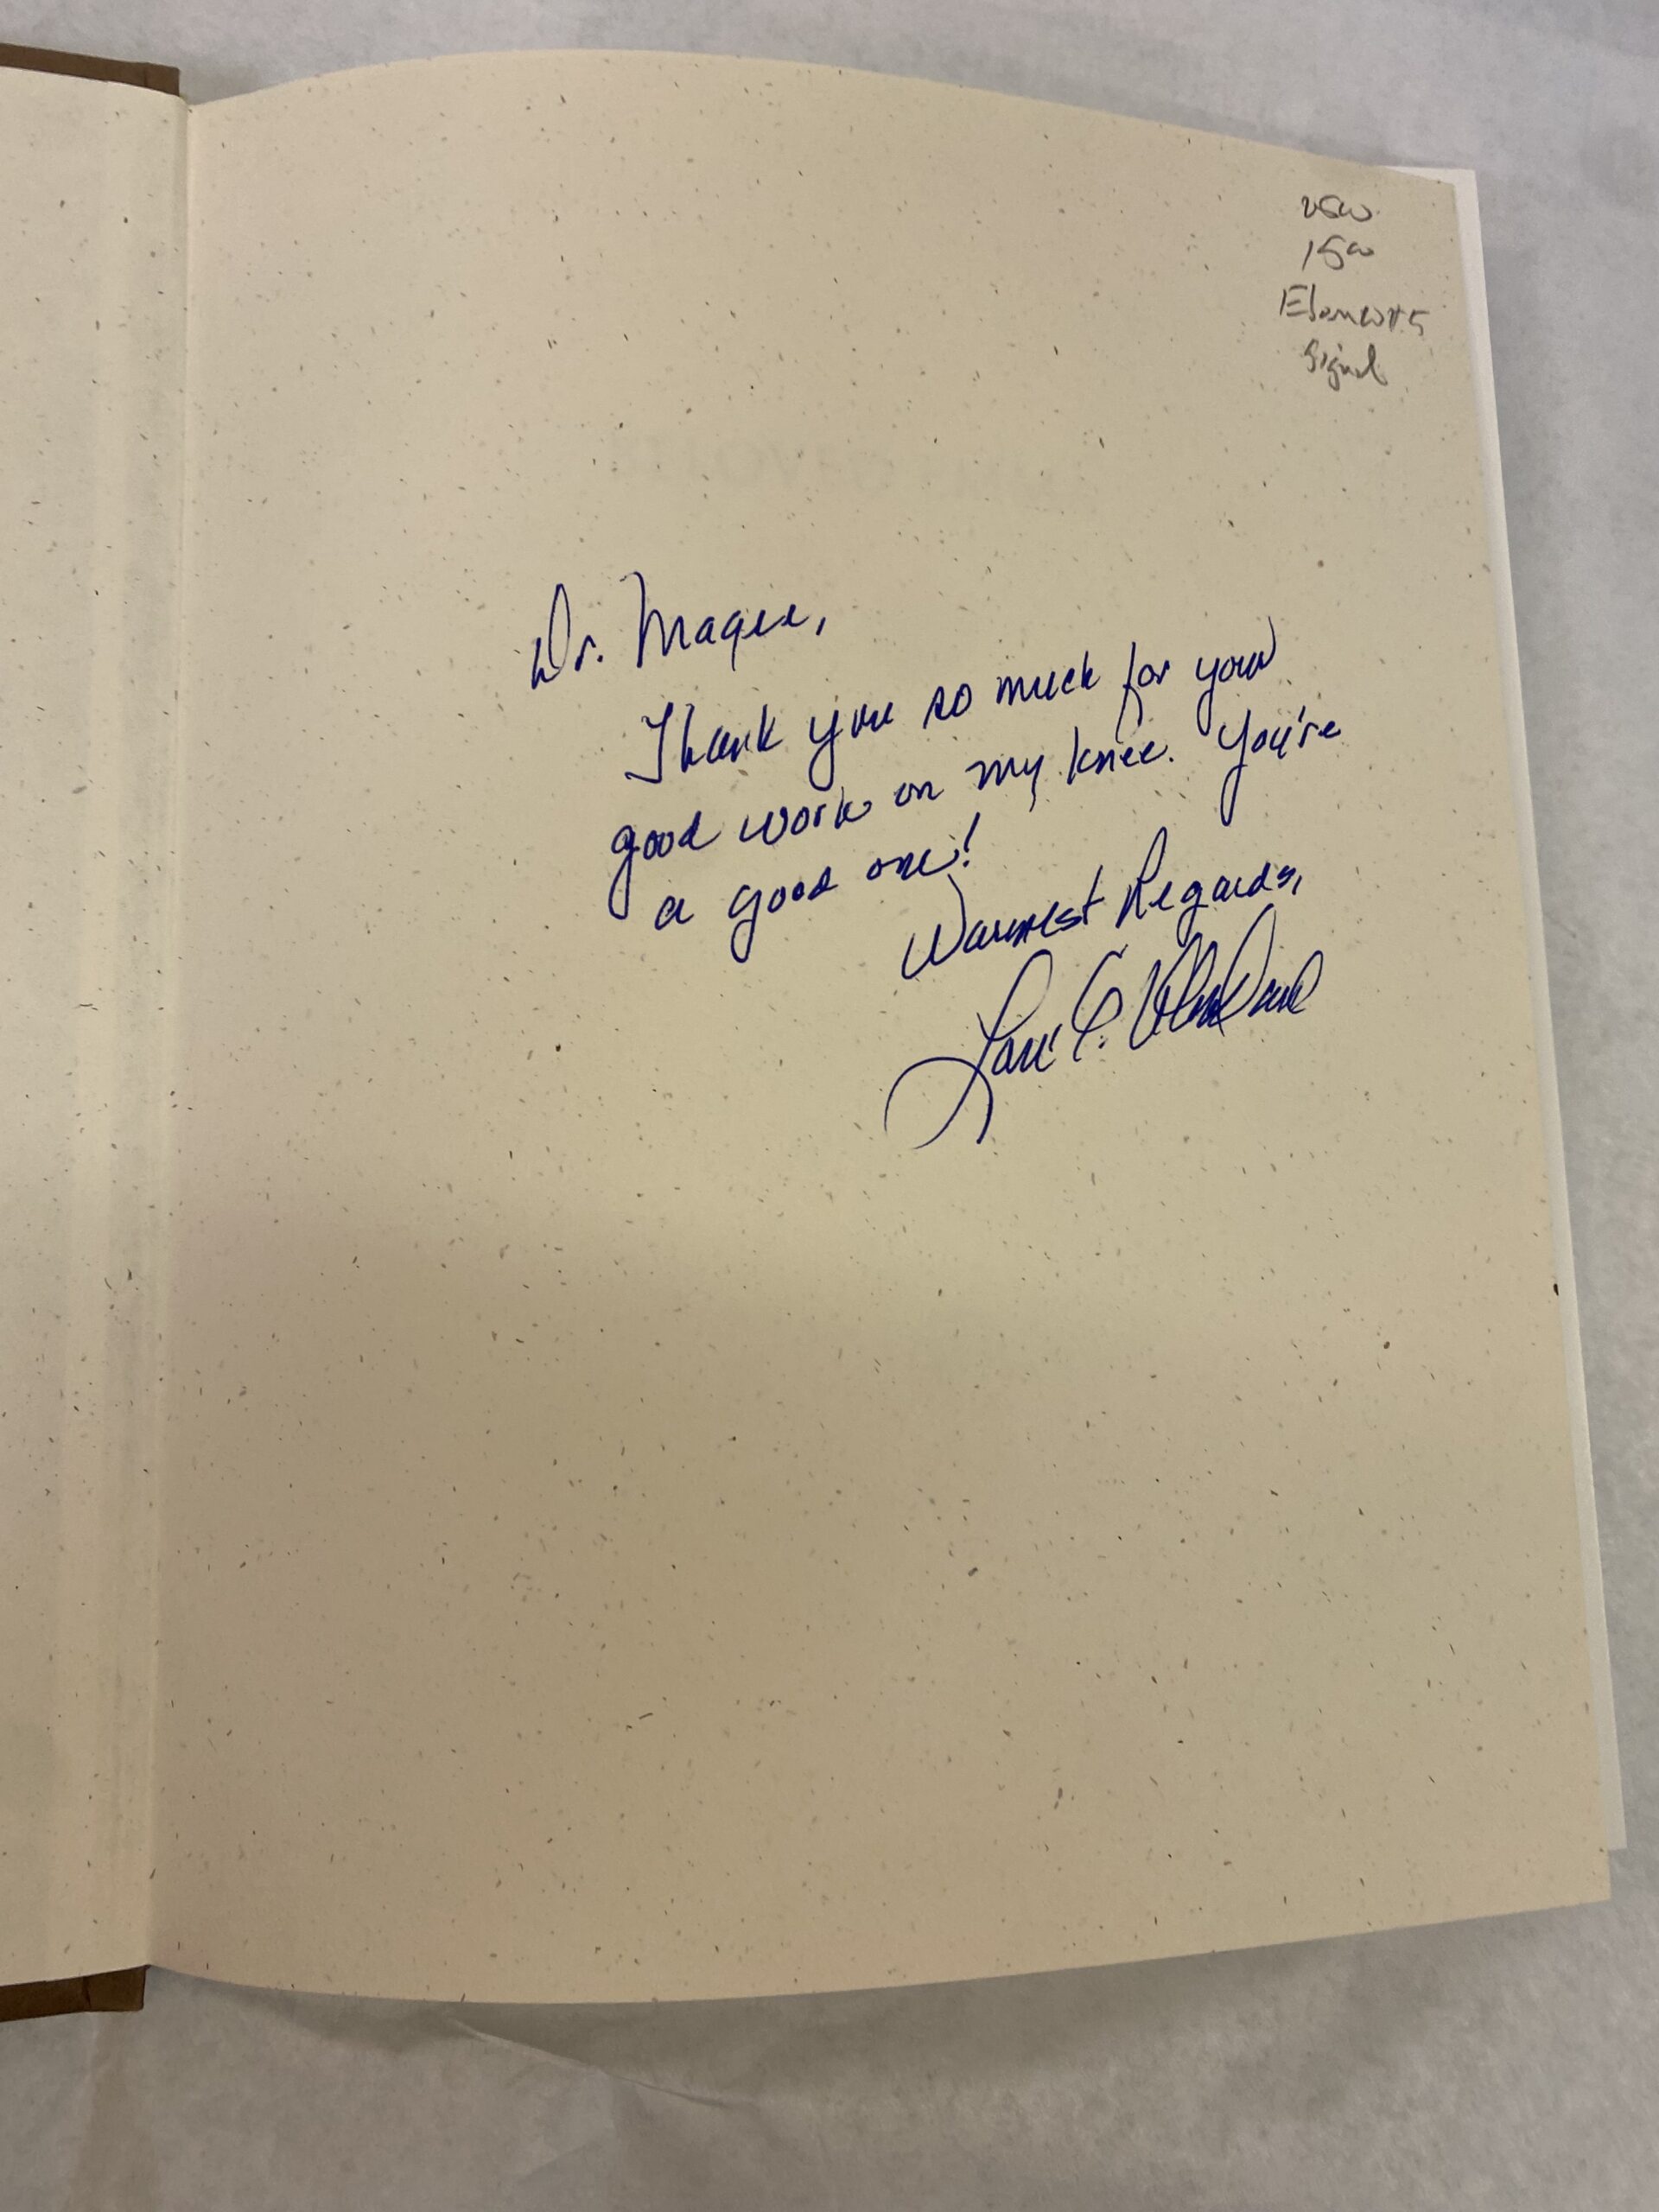 1500
Signed
Dr. Magee,
Thank you so much for your
good work on my knee. You're
a good one!
Warmest Regards,